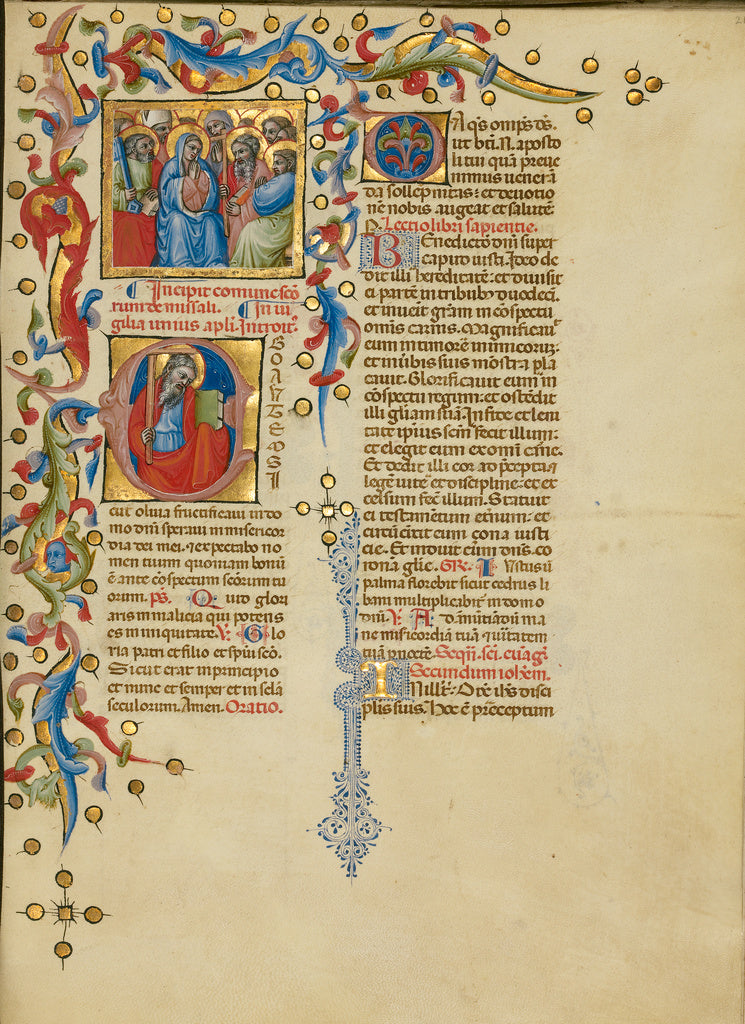 Incipit comune sco
rum de missali. In ui
gilia unius apli. Introit'
EGO AUTEM SI
cut oliua fructificaui in do
mo dni speraui in misericor
dia dei mei. et expectabo no
men tuum quoniam bonū
ē ante cōspectum scōrum tu
orum. ps. Quid glori
aris in malicia qui potens
es in iniquitate. V. Glo
ria patri et filio et spūi scō.
Sicut erat in principio
et nunc et semper et in sclā
seculorum. Amen. Oratio.
DA qs omps ds.
ut bti. N. aposto
li tui quā preue
nimus uenerā
da sollepnitas: et deuotio
nē nobis augeat et salutē.
Lectio libri sapientie.
BEnedictō dni super
caput iusti. Ideo de
dit illi hereditatē: et diuisit
ei partē in tribub; duodeci.
et inuenit grām in cōspectu
omīs carnis. Magnificauit
eum in timorē inimicorum;
et in uerbis suis mōstra pla
cauit. Glorificauit eum in
cōspectu regum: et ostēdit
illi gliam suā. In fide et leni
tate ipīus scm fecit illum:
et elegit eum ex omi carne.
Et dedit illi cor ad p̄cepta et
legē uite et discipline: et ex
celsum fec illum. Statuit
ei testamētum etnum: et
circūcixit eum çona iusti
cie. Et induit eum dns co
ronā glie. GR. Iustus ut
palma florebit sicut cedrus li
bani multiplicabit in domo
dni. V. Ad nūtiandū ma
ne misericordiā tuā et uitatem
tuā p noctē. Sequī. sci. euāgī
Secundum iohem.
IN ill r: Dix ihs disci
plis suis. Hoc ē preceptum